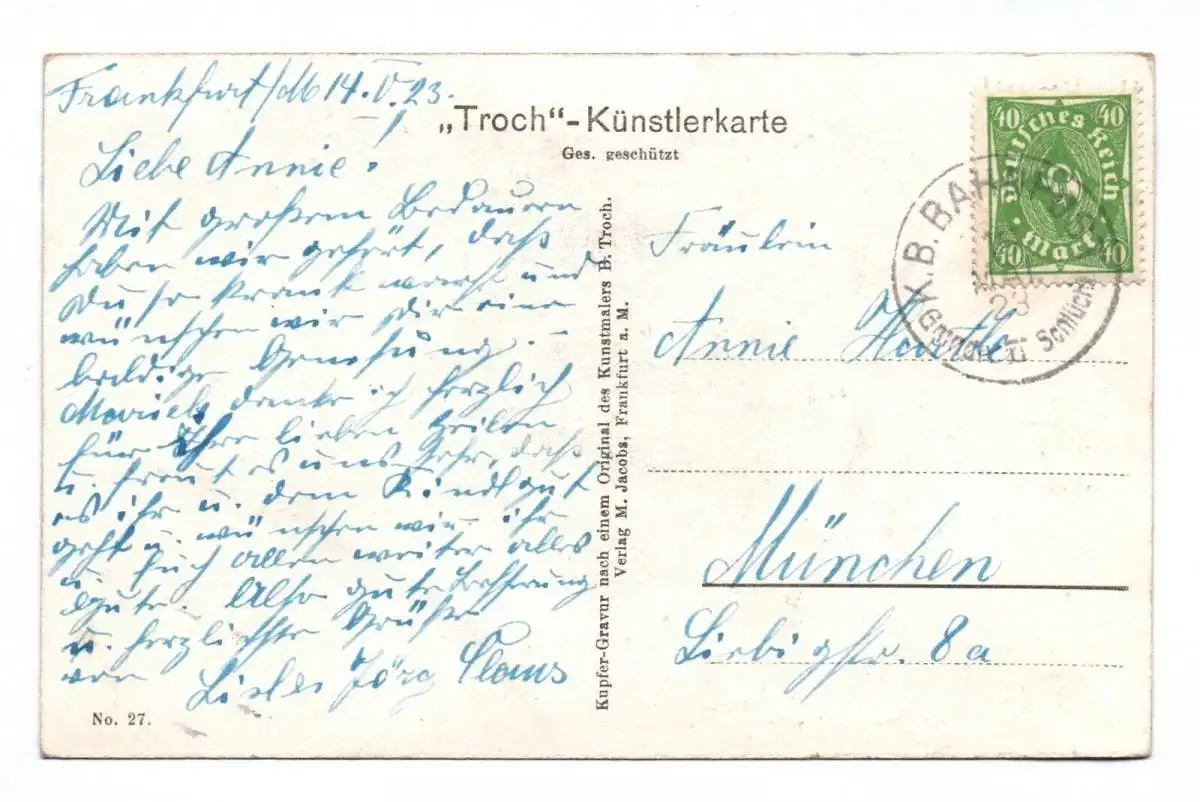 Frankfurt/M 14.V.23.
Liebe Annie!
Mit großem Bedauern
haben wir gehört, daß
Du so krank warst und
wünschen wir Dir eine
baldige Genesung.
danke ich herzlich
für Ihre lieben Zeilen
u. freut es uns sehr, daß
es ihr u. dem Kindl gut
geht u. wünschen wir ihr
u. Euch allen weiter alles
Gute. Also gute Besserung
u. herzlichste Grüße
von Jörg Claus
No. 27.
„Troch“-Künstlerkarte
Ges. geschützt
Kupfer-Gravur nach einem Original des Kunstmalers B. Troch.
Verlag M. Jacobs, Frankfurt a. M.
Fräulein
Annie
München
Liebigstr. 8a
40 40
Deutsches Reich
Mark
40 40
K.B. BAH
23
Schlücht